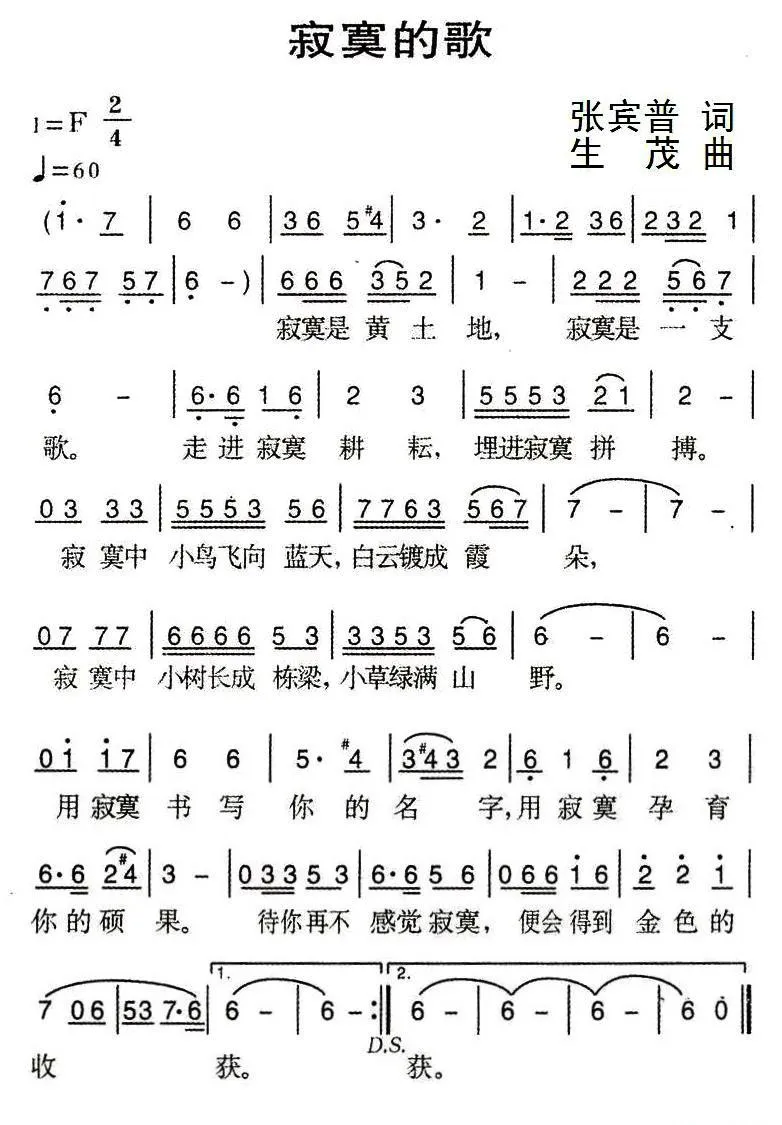 寂寞的歌
1=F 2/4
张宾普 词
♩=60
生 茂 曲
(i· 7 | 6 6 | 36 5#4 | 3· 2 | 1·2 36 | 232 1 |
767 57 | 6 -) | 666 352 | 1 - | 222 567 |
寂寞是 黄 土 地, 寂寞是 一 支
6 - | 6·6 16 | 2 3 | 5553 21 | 2 - |
歌。 走进 寂寞 耕 耘, 埋进寂寞 拼 搏。
03 33 | 5553 56 | 7763 567 | 7 - | 7 - |
寂 寞中 小鸟飞向 蓝天, 白云镀成 霞 朵,
07 77 | 6666 53 | 3353 56 | 6 - | 6 - |
寂 寞中 小树长成 栋梁, 小草绿满 山 野。
0i i7 | 6 6 | 5· #4 | 3#43 2 | 6 1 6 | 2 3 |
用 寂寞 书 写 你 的 名 字, 用 寂 寞 孕 育
6·6 2#4 | 3 - | 0335 53 | 6·6 56 | 066 i6 | 2 2 i |
你 的 硕 果。 待你再不 感觉 寂寞, 便会 得到 金色的
7 06 | 53 7·6 | 1. 6 - | 6 - :‖ 2. 6 - | 6 - | 6 - | 6 0 ‖
D.S.
收 获。 获。